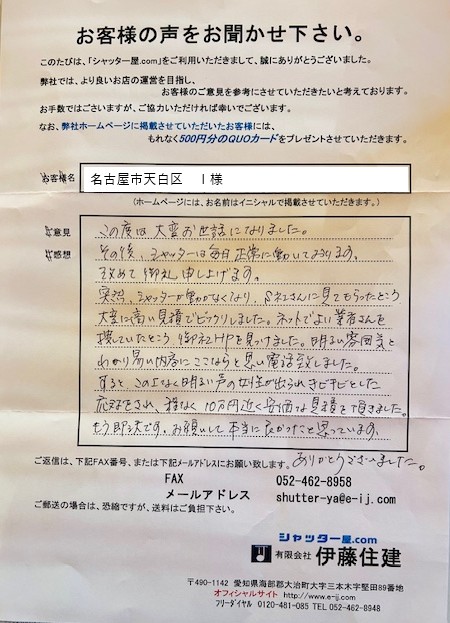 お客様の声をお聞かせ下さい。
このたびは、「シャッター屋.com」をご利用いただきまして、誠にありがとうございました。
弊社では、より良いお店の運営を目指し、
お客様のご意見を参考にさせていただきたいと考えております。
お手数ではございますが、ご協力いただければ幸いでございます。
なお、弊社ホームページに掲載させていただいたお客様には、
もれなく500円分のQUOカードをプレゼントさせていただきます。
お客様名 名古屋市天白区 I様
(ホームページには、お名前はイニシャルで掲載させていただきます。)
ご意見
ご感想
この度は大変お世話になりました。
その後、シャッターは毎日正常に働いております。
改めて御礼申し上げます。
突然、シャッターが動かなくなり、S社さんに見てもらったところ
大変に高い見積でビックリしました。ネットでよい業者さんを
探していたところ御社HPを見つけました。明るい雰囲気と
わかり易い内容にここならと思い電話致しました。
すると、この上なく明るい声の女性が出られきビキビとした
応対をされ、程なく10万円近く安価な見積を頂きました。
もう即決です。お願いして本当に良かったと思っています。
ありがとうございました。
ご返信は、下記FAX番号、または下記メールアドレスにお願い致します。
FAX 052-462-8958
メールアドレス shutter-ya@e-ij.com
ご郵送の場合は、恐縮ですが、送料はご負担下さい。
シャッター屋.com
有限会社 伊藤住建
〒490-1142 愛知県海部郡大治町大字三本木字堅田89番地
オフィシャルサイト http://www.e-ij.com
フリーダイヤル 0120-481-085 TEL 052-462-8948